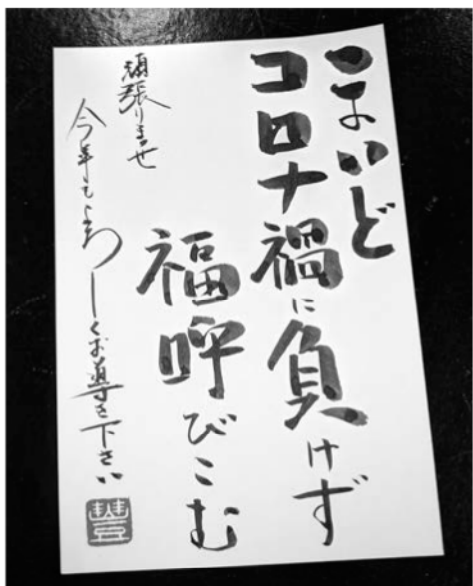 こまいど
コロナ禍に負けず
福呼びこむ
頑張りませ
今年もよろしくお導き下さい
豊